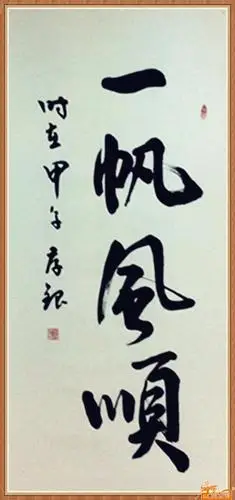 一帆風順
时在甲午存銀